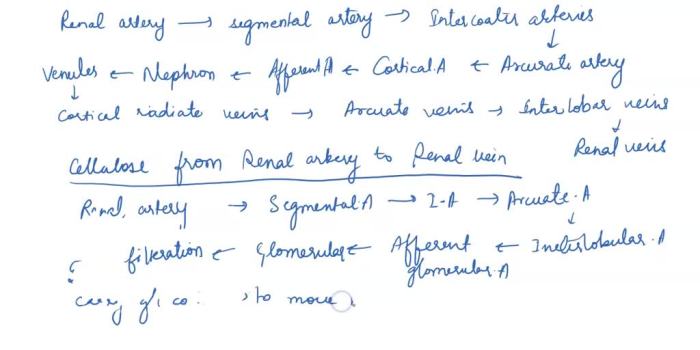 Renal artery → segmental artery → Intercoater arteries
↓
Venules ← Nephron ← Afferent A ← Cortical.A ← Arcurate artery
↓
Cortical radiate veins → Arcuate veins → Interlobar veins
↓
Renal veins
Cellulose from Renal artery to Renal vein
Renal, artery → Segmental.A → I-A → Arcuate.A
↓
filteration ← Glomerular ← Afferent glomerular.A ← Interlobular.A
to move